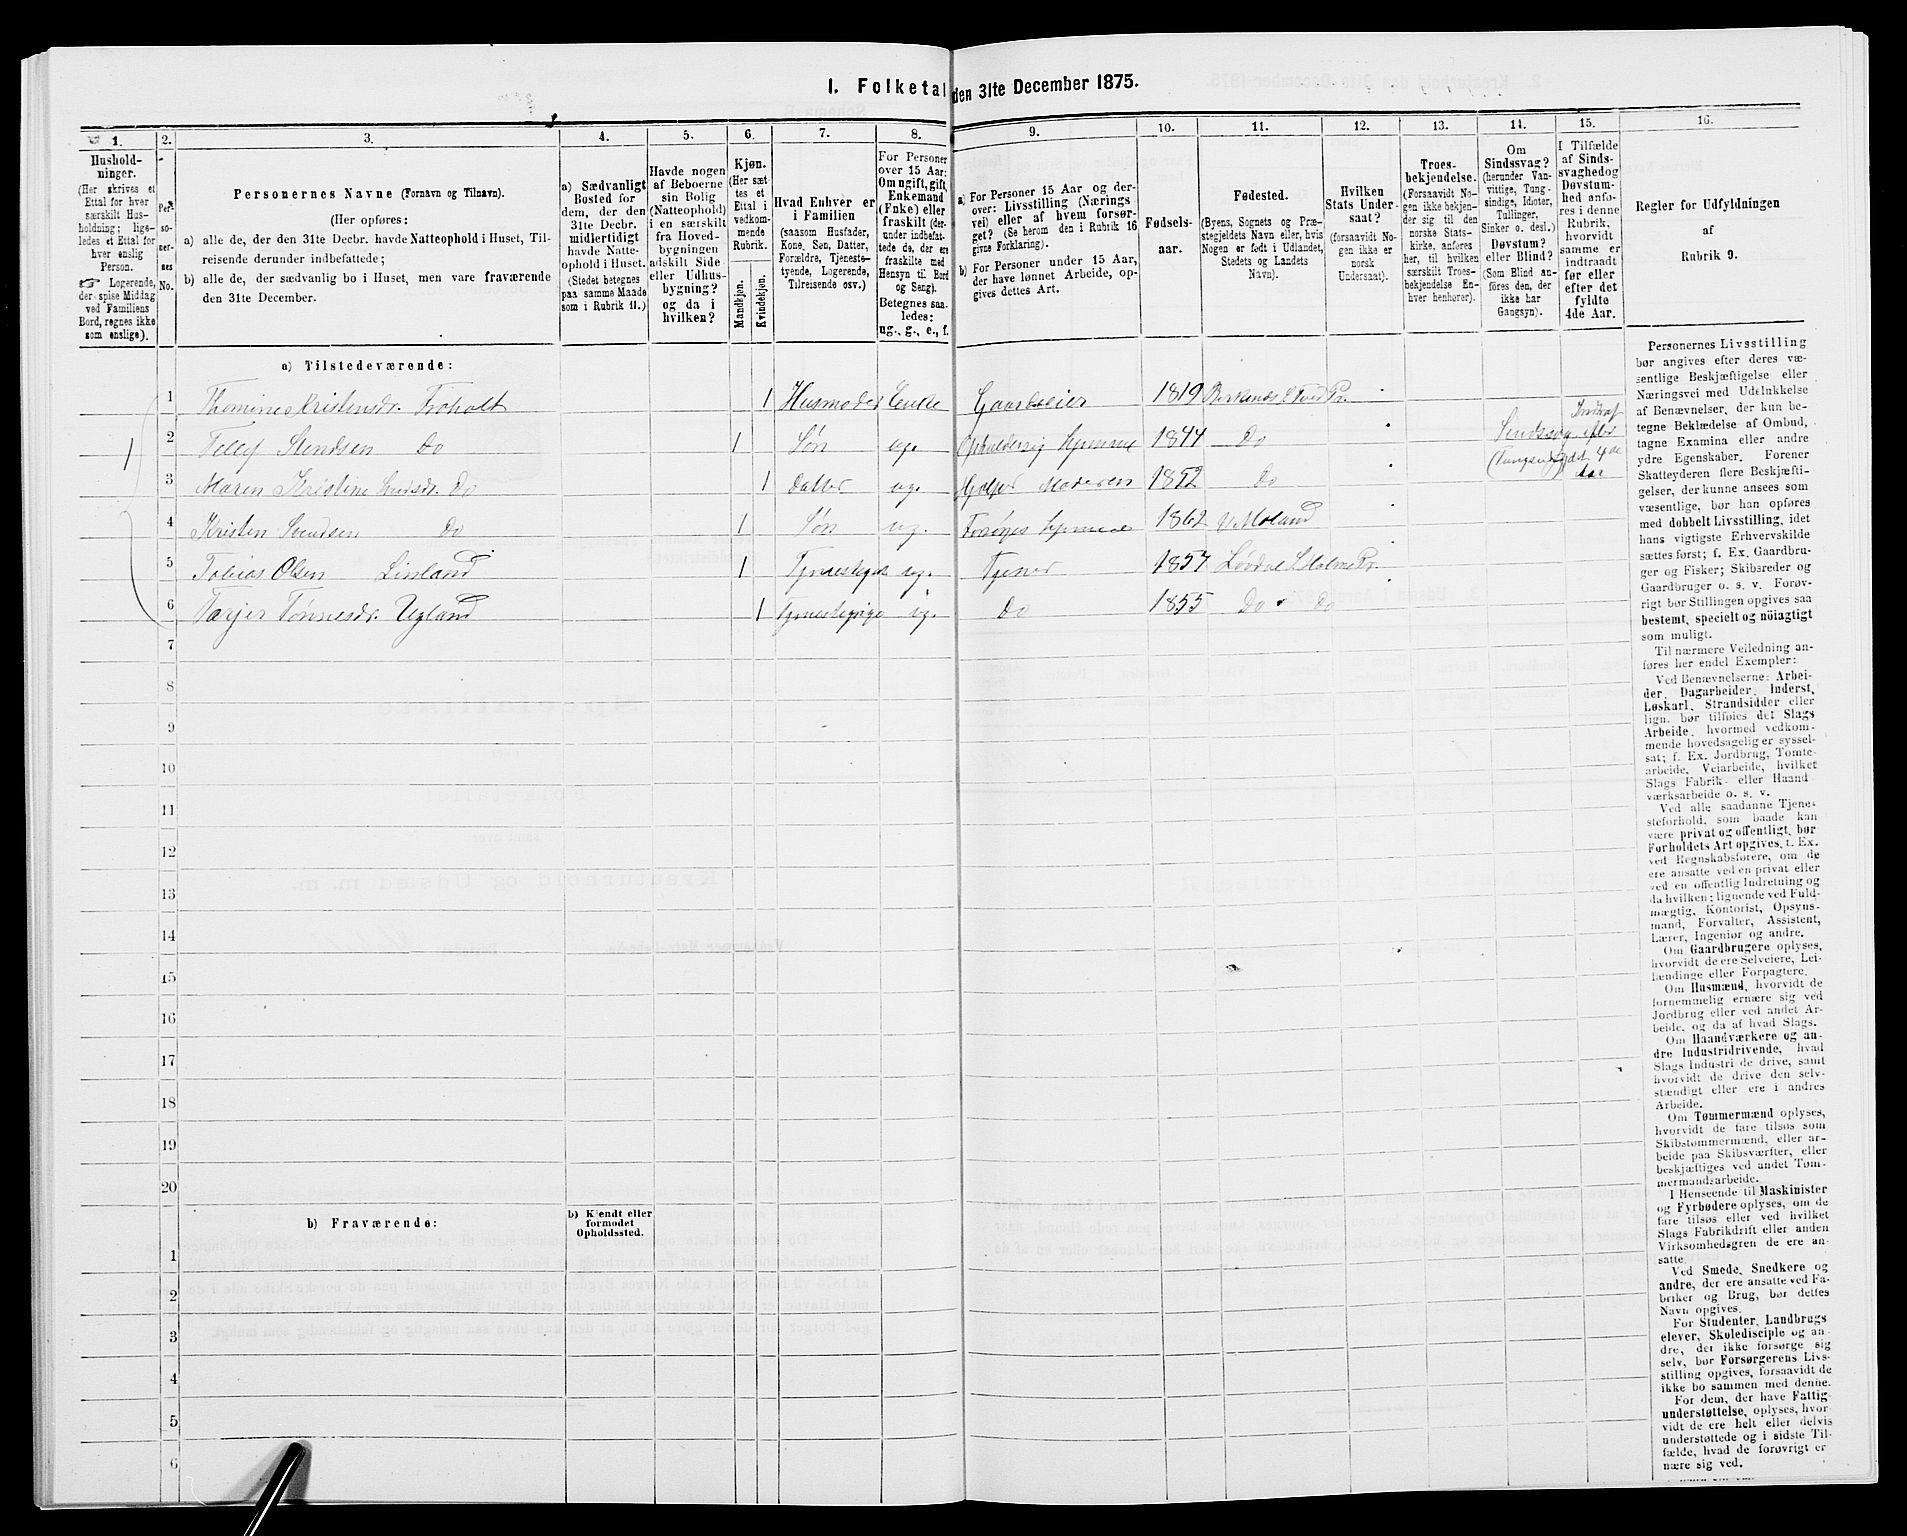 I. Folketal den 31te December 1875.
1.
Husholdninger.
(Her skrives et
Ettal for hver
særskilt Husholdning;
ligeledes et Ettal for
hver enslig
Person.
☞ Logerende,
der spise Middag
ved Familiens
Bord, regnes ikke
som enslige).
2.
Personernes
No.
3.
Personernes Navne (Fornavn og Tilnavn).
(Her opføres:
a) alle de, der den 31te Decbr. havde Natteophold i Huset, Tilreisende
derunder indbefattede;
b) alle de, der sædvanlig bo i Huset, men vare fraværende
den 31te December.
4.
a) Sædvanligt
Bosted for
dem, der den
31te Decbr.
midlertidigt
havde Natteophold
i Huset.
(Stedet betegnes
paa samme Maade
som i Rubrik 11.)
5.
Havde nogen
af Beboerne
sin Bolig
(Natteophold)
i en særskilt
fra Hovedbygningen
adskilt Side-
eller Udhusbygning?
og da i
hvilken?
6.
Kjøn.
(Her sættes
et
Ettal i
vedkommende
Rubrik.
Mandkjøn.
Kvindekjøn.
7.
Hvad Enhver er
i Familien
(saasom Husfader,
Kone, Søn, Datter,
Forældre, Tjenestetyende,
Logerende,
Tilreisende osv.)
8.
For Personer
over 15 Aar:
Om ugift, gift,
Enkemand
(Enke) eller
fraskilt (derunder
indbefattede
de, der ere
fraskilte med
Hensyn til Bord
og Seng).
Betegnes saaledes:
ug., g., e., f.
9.
a) For Personer 15 Aar og derover:
Livsstilling (Næringsvei)
eller af hvem forsørget?
(Se herom den i Rubrik 16
givne Forklaring).
b) For Personer under 15 Aar,
der have lønnet Arbeide, opgives
dettes Art.
10.
Fødselsaar.
11.
Fødested.
(Byens, Sognets og Præstegjeldets
Navn eller, hvis
Nogen er født i Udlandet,
Stedets og Landets
Navn).
12.
Hvilken
Stats Undersaat?
(forsaavidt Nogen
ikke er
norsk
Undersaat).
13.
Troesbekjendelse.
(Forsaavidt Nogen
ikke bekjender
sig til den
norske Statskirke,
anføres
her, til hvilken
særskilt Troesbekjendelse
Enhver
henhører).
14.
Om
Sindssvag?
(herunder Vanvittige,
Tungsindige,
Idioter,
Tullinger,
Sinker o. desl.)
Døvstum?
eller Blind?
(Som Blind anføres
den, der
ikke har
Gangsyn).
15.
I Tilfælde
af Sindssvaghed
og
Døvstumhed
anføres
i denne
Rubrik,
hvorvidt
samme er
indtraadt
før eller
efter det
fyldte
4de Aar.
16.
Regler for Udfyldningen
af
Rubrik 9.
a) Tilstedeværende:
1
1 Thomine Kristensdr. Froholt 1 Husmoder Enke Gaardeier 1819
2 Tellef Svendsen Do 1 Søn ug. 1844 Do Sindssvag efter
3 Maren Kristine Do 1 Datter ug. Hjelper Moderen 1852 Do 4de Aar
4 Kristen Svendsen Do 1 Søn ug. 1862 V. Moland
5 Tobias Olsen Linland 1 ug. Tjener 1857
6 Tarjer Tønnesdr. Ugland 1 ug. Do 1855 Do Do
7
8
9
10
11
12
13
14
15
16
17
18
19
20
b) Fraværende:
b) Kjendt eller
formodet
Opholdssted.
1
2
3
4
5
6
Personernes Livsstilling
bør angives efter deres væsentlige
Beskjæftigelse eller
Næringsvei med Udelukkelse
af Benævnelser, der kun betegne
Beklædelse af Ombud,
tagne Examina eller andre
ydre Egenskaber. Forener
Skatteyderen flere Beskjæftigelser,
der kunne ansees som
væsentlige, bør han opføres
med dobbelt Livsstilling, idet
hans vigtigste Erhvervskilde
sættes først; f. Ex. Gaardbruger
og Fisker; Skibsreder og
Gaardbruger o. s. v. Forøvrigt
bør Stillingen opgives saa
bestemt, specielt og nöiagtigt
som muligt.
Til nærmere Veiledning anføres
her endel Exempler:
Ved Benævnelserne: Arbeider,
Dagarbeider, Inderst,
Løskarl, Strandsidder eller
lign. bør tilføies det Slags
Arbeide, hvormed vedkommende
hovedsagelig er sysselsat;
f. Ex. Jordbrug, Tomtearbeide,
Veiarbeide, hvilket
Slags Fabrik- eller Haandværksarbeide
o. s. v.
Ved alle saadanne Tjenesteforhold,
som baade kan
være privat og offentligt, bør
Forholdets Art opgives, f. Ex.
ved Regnskabsførere, om de
ere ansatte ved en privat eller
ved en offentlig Indretning og
da hvilken; lignende ved Fuldmægtig,
Kontorist, Opsynsmand,
Forvalter, Assistent,
Lærer, Ingeniør og andre.
Om Gaardbrugere oplyses,
hvorvidt de ere Selveiere, Leilændinge
eller Forpagtere.
Om Husmænd, hvorvidt de
fornemmelig ernære sig ved
Jordbrug eller ved andet Arbeide,
og da af hvad Slags.
Om Haandværkere og andre
Industridrivende, hvad
Slags Industri de drive, samt
hvorvidt de drive den selvstændigt
eller ere i andres
Arbeide.
Om Tømmermænd oplyses,
hvorvidt de fare tilsøs som
Skibstømmermænd, eller arbeide
paa Skibsværfter, eller
beskjæftiges ved andet Tømmermandsarbeide.
I Henseende til Maskinister
og Fyrbødere oplyses, om de
fare tilsøs eller ved hvilket
Slags Fabrikdrift eller anden
Virksomhedsgren de ere ansatte.
Ved Smede, Snedkere og
andre, der ere ansatte ved Fabriker
og Brug, bør dettes
Navn opgives.
For Studenter, Landbrugselever,
Skoledisciple og andre,
der ikke forsørge sig
selv, bør Forsørgerens Livsstilling
opgives, forsaavidt de
ikke bo sammen med denne.
For dem, der have Fattigunderstøttelse,
oplyses, hvorvidt
de ere helt eller delvis
understøttede og i sidste Tilfælde,
hvad de forøvrigt ernære
sig ved.